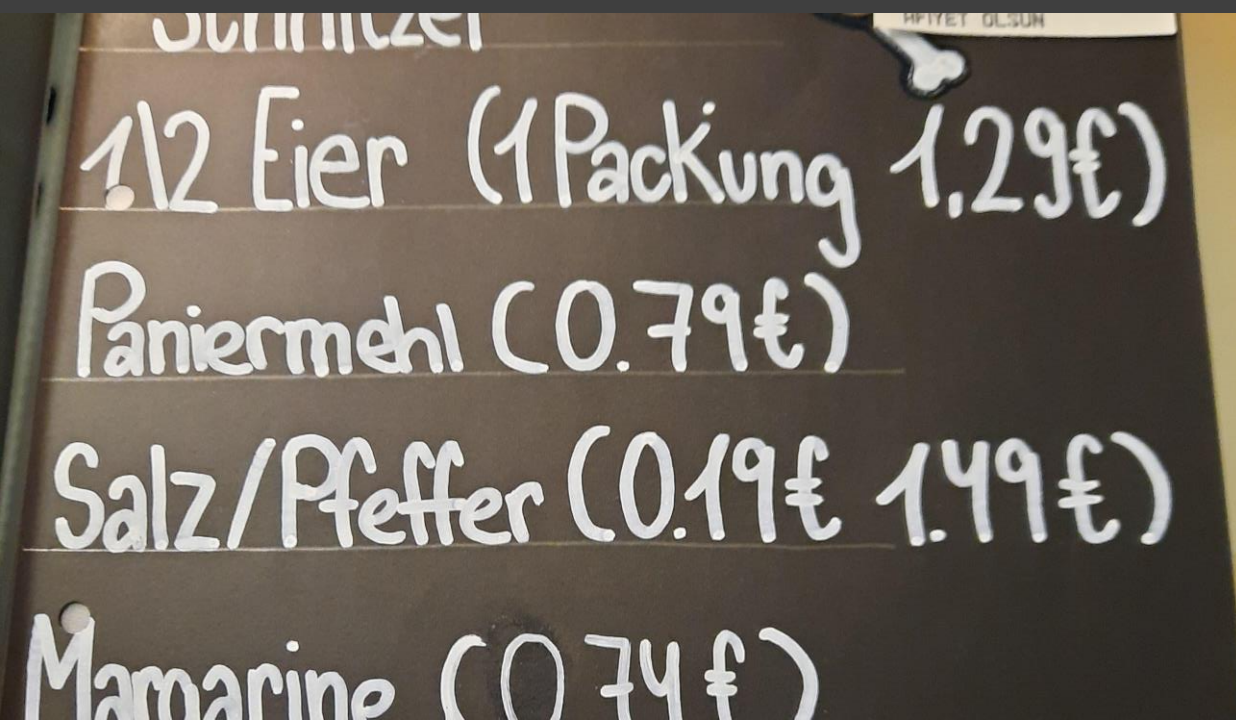 Schnitzel
AFIYET OLSUN
1\2 Eier (1 Packung 1,29€)
Paniermehl (0.79€)
Salz/Pfeffer (0.19€ 1.49€)
Margarine (0 74€)